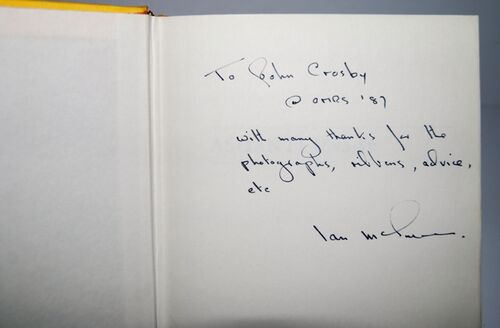 To John Crosby
@ OMRS '87
with many thanks for the
photographs, ribbons, advice,
etc
Ian